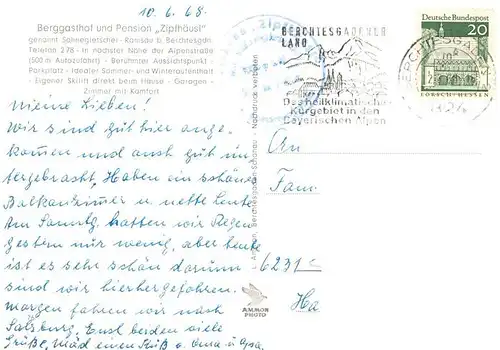 10. 6. 68.
Berggasthof und Pension „Zipfhäusl"
genannt Sahnegletscher - Ramsau b. Berchtesgdn.
Telefon 278 - in nächster Nähe der Alpenstraße
(500 m Autozufahrt) - Berühmter Aussichtspunkt -
Parkplatz - Idealer Sommer- und Winteraufenthalt
- Eigener Skilift direkt beim Hause - Garagen -
Zimmer mit Komfort
Meine Lieben!
Wir sind gut hier ange-
kommen und auch gut un-
tergebracht. Haben ein schönes
Balkonzimmer u. nette Leute
Am Sonntg. hatten wir Regen
gestern nur wenig, aber heute
ist es sehr schön darum
sind wir hierhergefahren.
Morgen fahren wir nach
Salzburg. Euch beiden viele
Grüße, und einen Kuß v. Oma u. Opa.
BERCHTESGADENER
LAND
Das heilklimatische
Kurgebiet in den
Bayerischen Alpen
Deutsche Bundespost
20
LORSCH-HESSEN
An
Fam.
6231
Ha
Nachdruck verboten
AMMON
PHOTO